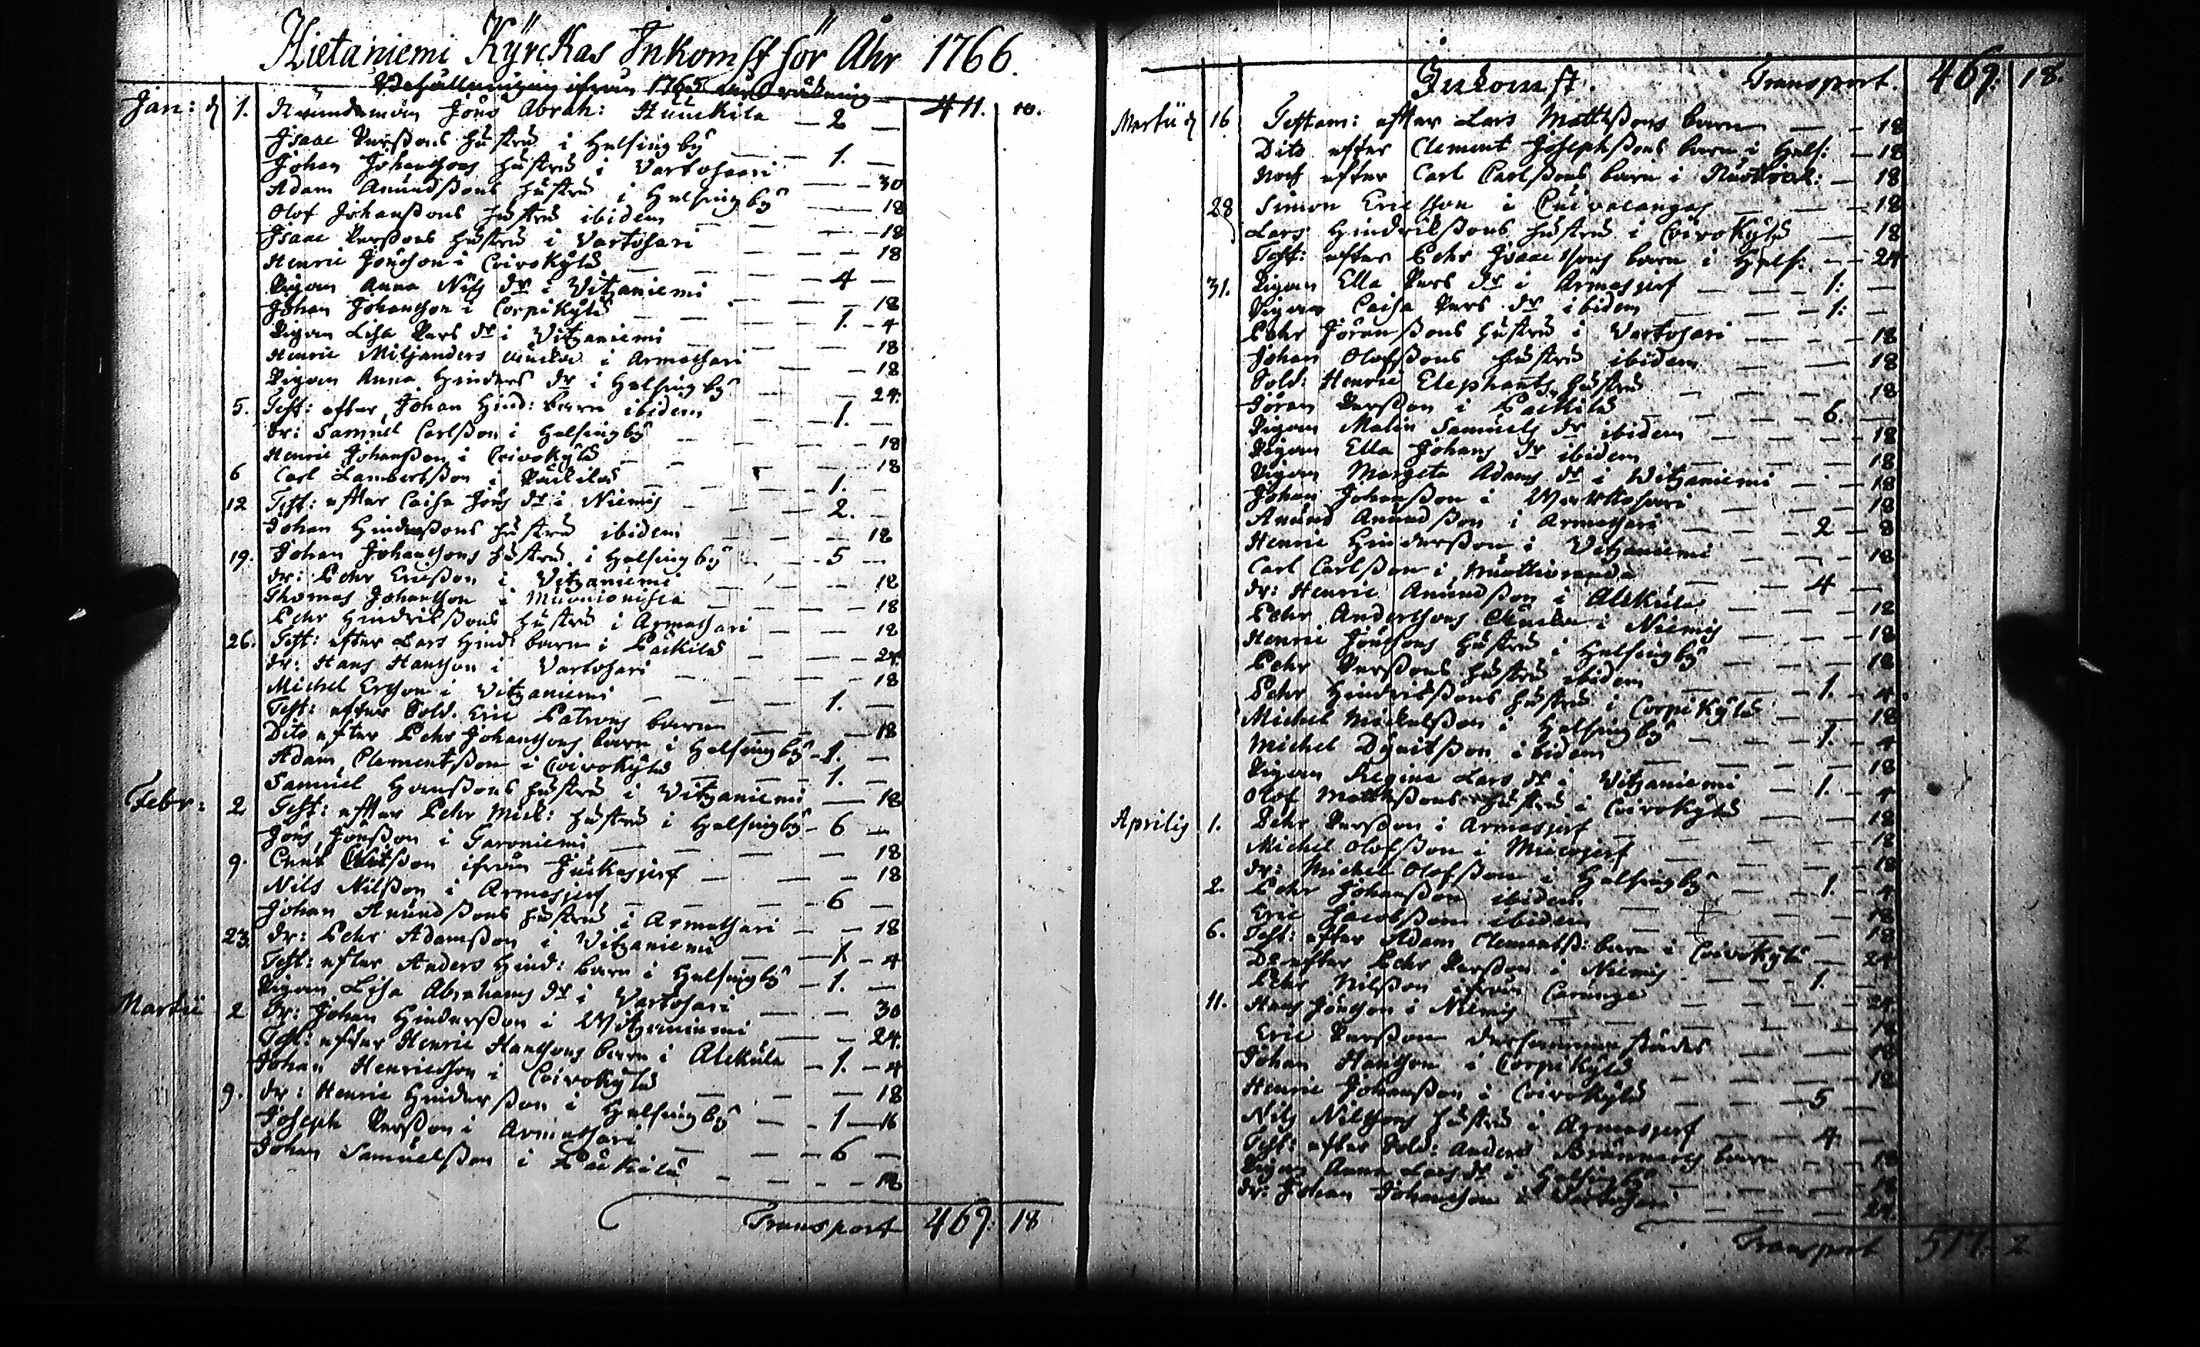 Hietaniemi Kÿrckas Inkomst för Åhr 1766.
Behållningen ifrån 1765 års räkning 411. 10.
Jan: d 1. Nämndeman Jöns Abrah: — 2 —
Isaac Persßons hustru i Helsingbÿ — 1. —
Johan Johansons hustru i Vartosaari — 30
Adam Anundßons hustru i Helsingbÿ — 18
Olof Johanßons hustru ibidem — 18
Isaac Persßons hustru i Vartosari — 18
Henric Jönsson i Coivokÿlä
Pigan Anna Nils dr i Vitzaniemi — 4 —
Johan Johansson i Corpikÿlä — 18
Pigan Lisa Pers dr i Vitzaniemi — 1. — 4
Henric Miljanders Änka i Armassari — 18
Pigan Anna Hinders dr i Helsingbÿ — 18
5. Test: efter Johan Hind: barn ibidem — 24.
Dr: Samuel Carlsßon i Helsingbÿ — 1. —
Henric Johanßon i Coivokÿlä — 18
6 Carl Lambertsßon i Päckilä — 18
12 Test: efter Caisa Jöns dr i Niemis — 1. —
Johan Hindersßons hustru ibidem — 2. —
19. Johan Johansons hustru i Helsingbÿ — 5 —
dr: Pehr Ericsßon i Vitzaniemi — 18
Thomas Johansson i Muonionisca — 18
Pehr Hindricsßons hustru i Armassari — 18
26. Test: efter Lars Hind: barn i Päckilä — 24.
dr: Hans Hansson i Vartosari — 18
Michel Ersson i Vitzaniemi — 1. —
Test: efter Sold. Eric Patrons barn — 18
Dito efter Pehr Johansons barn i Helsingbÿ — 1. —
Adam Clementsßon i Coivokÿlä — 1. —
Samuel Hansßons hustru i Vitzaniemi — 18
Febr: 2 Test: efter Pehr Mick: hustru i Helsingbÿ — 6 —
Jöns Jönsßon i Garoniemi — 18
9. Cnut Olufsßon ifrån Juckasjerf — 18
Nils Nilsßon i Armasjerf — 6 —
Johan Anundsßons hustru i Armassari — 18
23. dr: Pehr Adamsßon i Vitzaniemi — 1 — 4
Test: efter Anders Hind: barn i Helsingbÿ — 1. —
Pigan Lisa Abrahams dr i Vartosari — 30
Martii 2 Dr: Johan Hindersßon i Witzaniemi — 24.
Test: efter Henric Hansons barn i Alckula — 1. — 4
Johan Henricsson i Coivokÿlä — 18
9. dr: Henric Hindersßon i Helsingbÿ — 1 — 16
Joseph Persßon i Armassari — 6 —
Johan Samuelsßon i Päckilä — 18
Transport 469. 18
Inkomst. Transport. 469. 18.
Martii d 16 Testam: efter Lars Mattsßons barn — 18
Dito efter Clement Josephsßons barn i Hels: — 18
Noch efter Carl Carlsßons barn i — 18
28 Simon Ericsson i — 18
Lars Hindricsßons hustru i Coivokÿlä — 18
Test: efter Pehr Isaacssons barn i Hels: — 24
31. Pigan Ella Pers dr i Armasjerf — 1: —
Pigan Caisa Pers dr ibidem — 1: —
Pehr Jöransßons hustru i Vartosari — 18
Johan Olofsßons hustru ibidem — 18
Sold: Henric Elephants hustru — 18
Jöran Persßon i Päckilä — 6. —
Pigan Malin Samuels dr ibidem — 18
Pigan Ella Johans dr ibidem — 18
Pigan Margeta Adams dr i Vitzaniemi — 18
Johan Johansßon i Warttosaari — 18
Anund Anundsßon i Armassari — 2 — 8
Henric Hindersßon i Vitzaniemi — 18
Carl Carlsßon i Nuottioranda — 4 —
dr: Henric Anundsßon i Alckula — 18
Pehr Anderssons Änka i Niemis — 18
Henric Jönsons hustru i Helsingbÿ — 18
Pehr Persßons hustru ibidem — 1. — 4
Pehr Hindricsßons hustru i Corpikÿlä — 18
Michel Mickelsßon i Helsingbÿ — 1. — 4
Michel ibidem — 18
Pigan Regina Lars dr i Vitzaniemi — 1. — 4
Olof Mattsßons hustru i Coivokÿlä — 18
Aprilis 1. Pehr Persßon i Armasjerf — 18
Michel Olofsßon i Miecojerf — 18
dr: Michel Olofsßon i Helsingbÿ — 1. — 4
2. Pehr Johansßon ibidem — 18
Eric Jacobsßon ibidem — 18
6. Test: efter Adam Clementsß: barn i Coivokÿlä — 24
Do efter Pehr Persßon i Niemis — 1. —
Pehr Nilsßon ifrån Carunge — 24.
11. Hans Jönsson i Niemis — 18
Eric Persßon dersammanstädes — 18
Johan Hansson i Corpikÿlä — 18
Henric Johansßon i Coivokÿlä — 5 —
Nils Nilssons hustru i Armasjerf — 4. —
Test: efter Sold: Anders Brännares barn — 18
Pigan Anna Lars dr i Helsingbÿ — 18
dr: Johan Johansson i Vartosari — 24.
Transport 517. 2